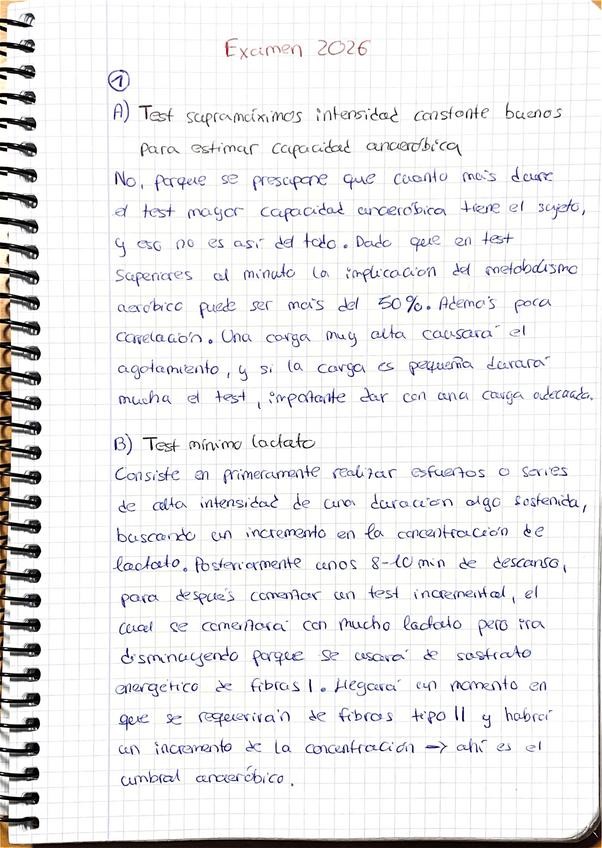 Examen 2026
1
A) Test supramáximos intensidad constante buenos
para estimar capacidad anaeróbica
No, porque se presupone que cuanto más dure
el test mayor capacidad anaeróbica tiene el sujeto,
y eso no es así del todo. Dado que en test
superiores al minuto la implicación del metabolismo
aeróbico puede ser más del 50%. Además poca
correlación. Una carga muy alta causará el
agotamiento, y si la carga es pequeña durará
mucha el test, importante dar con una carga adecuada.
B) Test mínimo lactato
Consiste en primeramente realizar esfuerzos o series
de alta intensidad de una duración algo sostenida,
buscando un incremento en la concentración de
lactato. Posteriormente unos 8-10 min de descanso,
para después comenzar un test incremental, el
cual se comenzará con mucho lactato pero irá
disminuyendo porque se usará de sustrato
energético de fibras I. Llegará un momento en
que se requerirán de fibras tipo II y habrá
un incremento de la concentración → ahí es el
umbral anaeróbico.